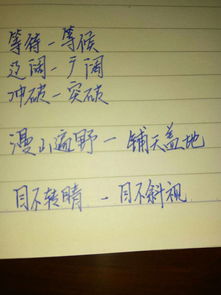 等待－等候
辽阔－广阔
冲破－突破
漫山遍野－铺天盖地
目不转睛－目不斜视